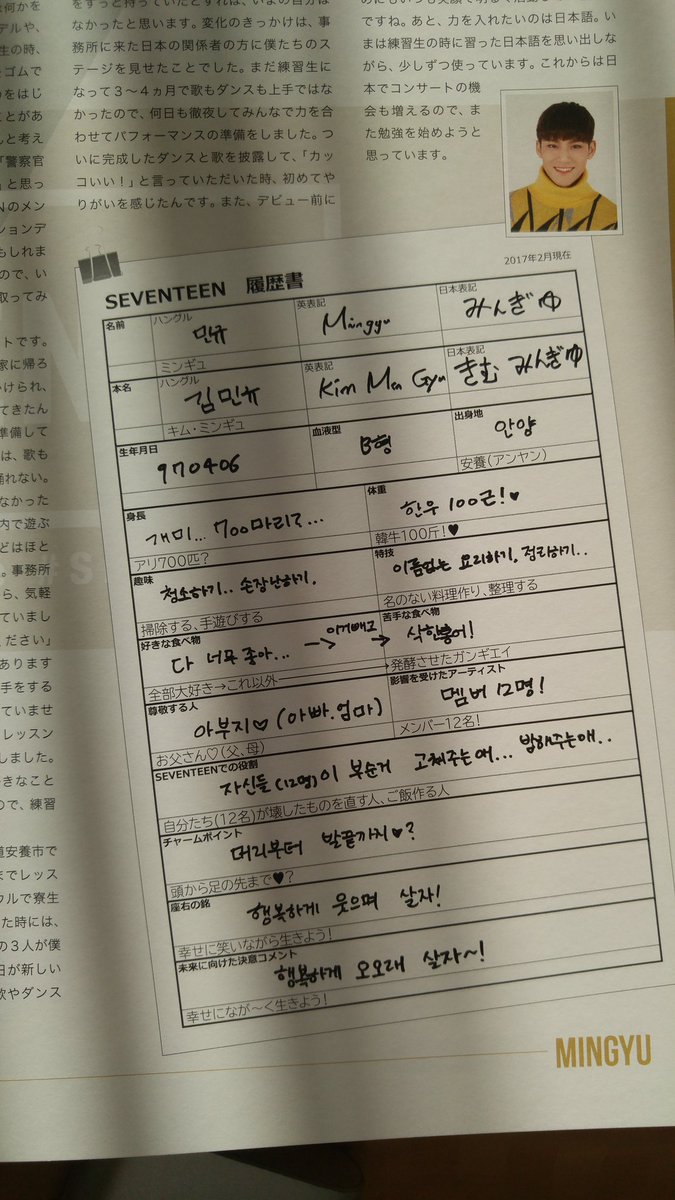 をずっと持っていたとすれば、いまの自分は
なかったと思います。変化のきっかけは、事
務所に来た日本の関係者の方に僕たちのス
テージを見せたことでした。まだ練習生に
なって３〜４ヵ月で歌もダンスも上手ではな
かったので、何日も徹夜してみんなで力を合
わせてパフォーマンスの準備をしました。つ
いに完成したダンスと歌を披露して、「カッ
コいい！」と言っていただいた時、初めてや
りがいを感じたんです。また、デビュー前に
ですね。あと、力を入れたいのは日本語。い
まは練習生の時に習った日本語を思い出しな
がら、少しずつ使っています。これからは日
本でコンサートの機
会も増えるので、ま
た勉強を始めようと
思っています。
何かを
デルや、
生の時、
ゴムで
をはじ
ことがあ
んと考え
「警察官
」と思っ
Nのメン
ションデ
もしれま
ので、い
取ってみ
トです。
家に帰る
かけられ、
てきたん
準備して
は、歌も
踊れない。
なかった
内で遊ぶ
どはほと
。事務所
ら、気軽
ていまし
ください」
あります
手をする
ていませ
レッスン
しました。
きなこと
ので、練習
道安養市で
までレッス
ウルで寮生
た時には、
の３人が僕
日が新しい
歌やダンス
SEVENTEEN 履歴書
2017年2月現在
名前 ハングル 민규 英表記 Mingyu 日本表記 みんぎゆ
ミンギュ
本名 ハングル 김민규 英表記 Kim Min Gyu 日本表記 きむ みんぎゆ
キム・ミンギュ
生年月日 970406 血液型 B형 出身地 안양
安養（アンヤン）
身長 개미... 700마리?... 体重 한우 100근!♥
アリ700匹？ 韓牛100斤！♥
趣味 청소하기.. 손장난하기. 特技 이름없는 요리하기, 정리하기..
掃除する、手遊びする 名のない料理作り、整理する
好きな食べ物 다 너무 좋아... → 이거빼고 → 苦手な食べ物 삭힌홍어!
全部大好き→これ以外 → 発酵させたガンギエイ
尊敬する人 아부지♡ (아빠.엄마) 影響を受けたアーティスト 멤버 12명!
お父さん♡（父、母） メンバー12名！
SEVENTEENでの役割 자신들 (12명)이 부순거 고쳐주는애... 밥해주는애..
自分たち（12名）が壊したものを直す人、ご飯作る人
チャームポイント 머리부터 발끝까지♥?
頭から足の先まで♥？
座右の銘 행복하게 웃으며 살자!
幸せに笑いながら生きよう！
未来に向けた決意コメント 행복하게 오오래 살자~!
幸せになが〜く生きよう！
MINGYU